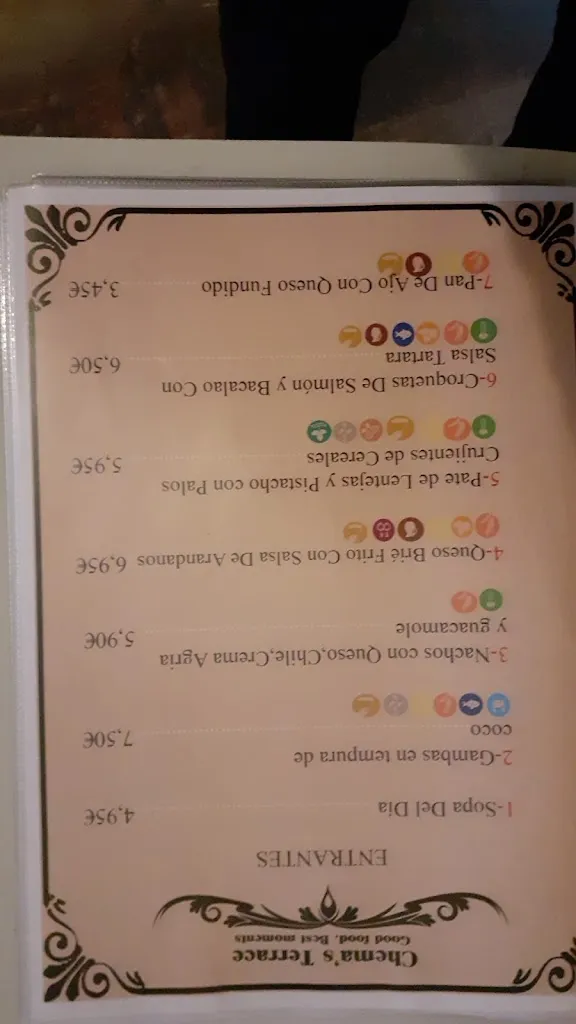 Chema's Terrace
Good food, Best moments
ENTRANTES
1-Sopa Del Dia 4,95€
2-Gambas en tempura de
coco 7,50€
3-Nachos con Queso,Chile,Crema Agria
y guacamole 5,90€
4-Queso Brié Frito Con Salsa De Arandanos 6,95€
5-Pate de Lentejas y Pistacho con Palos
Crujientes de Cereales 5,95€
6-Croquetas De Salmón y Bacalao Con
Salsa Tartara 6,50€
7-Pan De Ajo Con Queso Fundido 3,45€